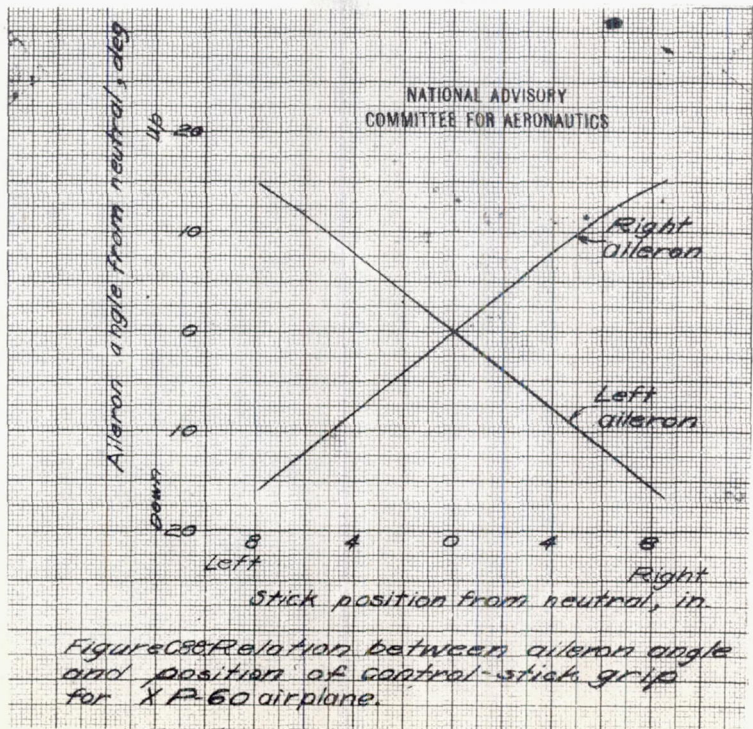 NATIONAL ADVISORY
COMMITTEE FOR AERONAUTICS
Aileron angle from neutral, deg
Up
20
10
0
10
20
Down
Right
aileron
Left
aileron
8 4 0 4 8
Left
Right
Stick position from neutral, in.
Relation between aileron angle
and position of control-stick grip
for XP-60 airplane.